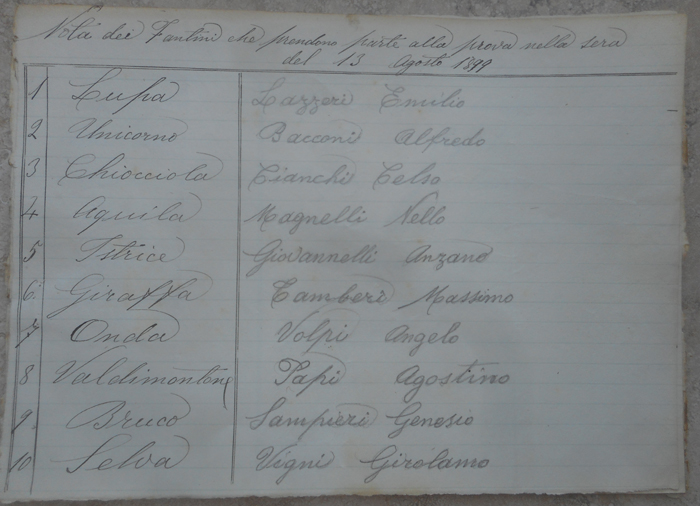 Nota dei Fantini che prendono parte alla prova nella sera
del 13 Agosto 1899
1 Lupa Lazzeri Emilio
2 Unicorno Bacconi Alfredo
3 Chiocciola Cianchi Celso
4 Aquila Magnelli Nello
5 Istrice Giovannelli Anzano
6 Giraffa Tamberi Massimo
7 Onda Volpi Angelo
8 Valdimontone Papi Agostino
9 Bruco Sampieri Genesio
10 Selva Vigni Girolamo